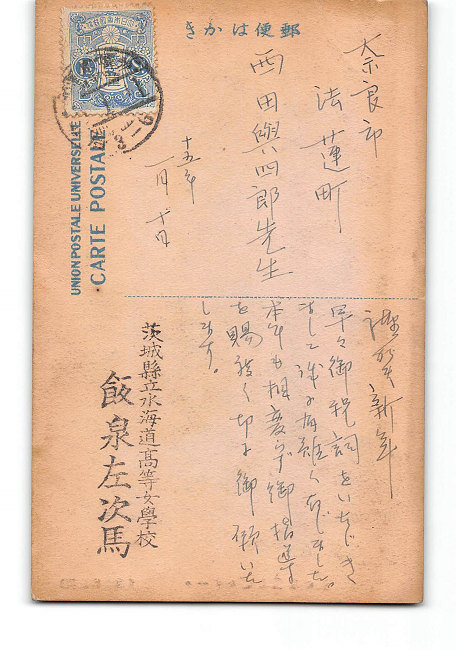 郵便はかき
UNION POSTALE UNIVERSELLE
CARTE POSTALE
奈良市
法蓮町
西田與四郎先生
十五年
一月十日
謹賀新年
早々御祝詞をいたゞき
まして誠に有難く存じました。
本年も相変らず御指導
を賜り度く切に御願いた
します。
茨城縣立水海道高等女學校
飯泉左次馬